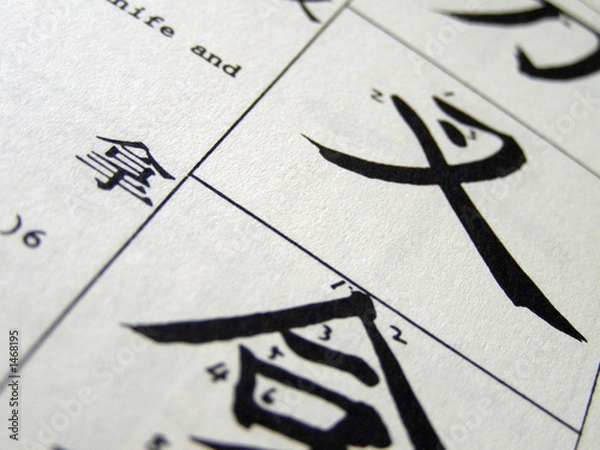 nife and
拿
)6
2 1
义
1
2
3
5
4
6
Adobe Stock | #1468195